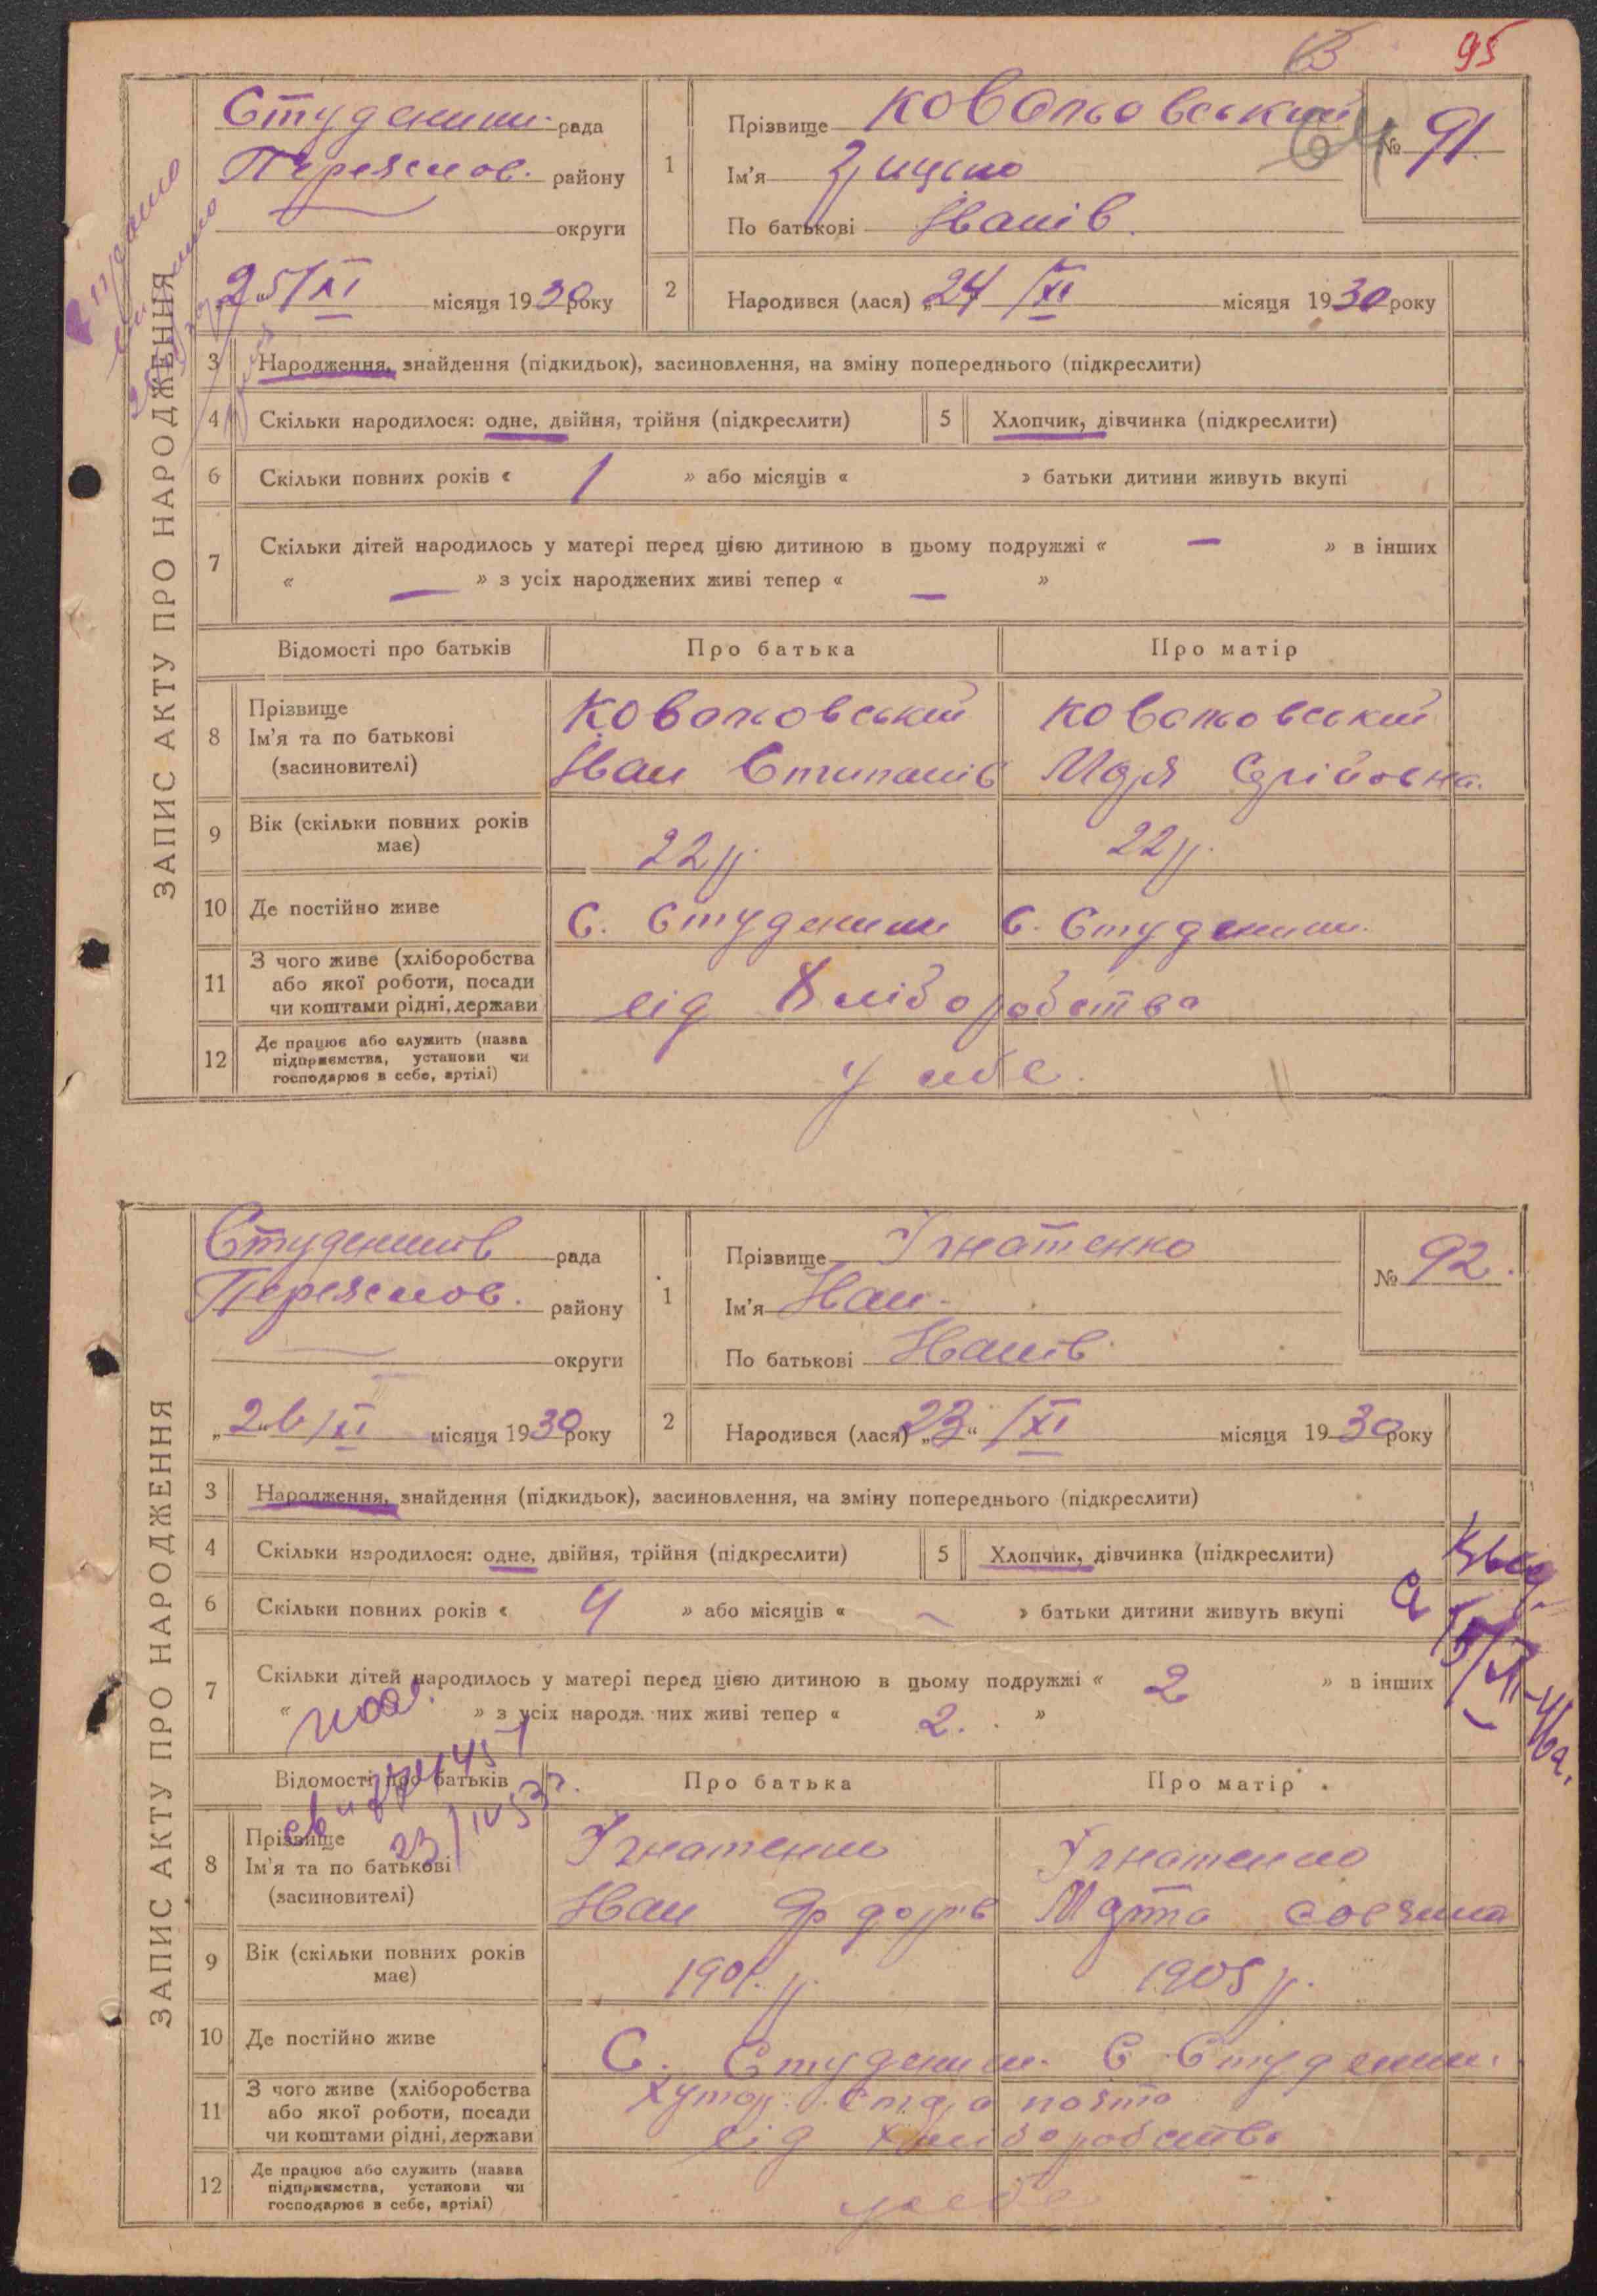 95
ЗАПИС АКТУ ПРО НАРОДЖЕННЯ
Студеники рада
Переяслов. району
округи
"25/XI місяця 1930 року
1
Прізвище Ковальовський
Ім'я
По батькові Іванів.
№ 91.
2
Народився (лася) „24 /XI місяця 1930 року
3 Народження, знайдення (підкидьок), засиновлення, на зміну попереднього (підкреслити)
4 Скільки народилося: одне, двійня, трійня (підкреслити) 5 Хлопчик, дівчинка (підкреслити)
6 Скільки повних років « 1 » або місяців « » батьки дитини живуть вкупі
7 Скільки дітей народилось у матері перед цією дитиною в цьому подружжі « — » в інших
« — » з усіх народжених живі тепер « — »
Відомості про батьків Про батька Про матір
8 Прізвище Ковальовський Ковальовський
Ім'я та по батькові Іван Стипанів Марія
(засиновителі)
9 Вік (скільки повних років має) 22 р. 22 р.
10 Де постійно живе С. Студеники С. Студеники.
11 З чого живе (хліборобства або якої роботи, посади чи коштами рідні, держави від Хліборобства
12 Де працює або служить (назва підприємства, установи чи господарює в себе, артілі) у себе.
ЗАПИС АКТУ ПРО НАРОДЖЕННЯ
Студеників рада
Переяслов. району
округи
„26/XI місяця 1930 року
1
Прізвище Ігнатенко
Ім'я Іван.
По батькові Іванів
№ 92.
2
Народився (лася) „23“ /XI місяця 1930 року
3 Народження, знайдення (підкидьок), засиновлення, на зміну попереднього (підкреслити)
4 Скільки народилося: одне, двійня, трійня (підкреслити) 5 Хлопчик, дівчинка (підкреслити)
6 Скільки повних років « 4 » або місяців « – » батьки дитини живуть вкупі
7 Скільки дітей народилось у матері перед цією дитиною в цьому подружжі « 2 » в інших
« » з усіх народжених живі тепер « 2. »
Відомості про батьків Про батька Про матір
23/IV 53 г.
8 Прізвище Ігнатенко Ігнатенко
Ім'я та по батькові Іван Федорів Марта
(засиновителі)
9 Вік (скільки повних років має) 1901 р. 1905 р.
10 Де постійно живе С. Студеники. С. Студеники.
11 З чого живе (хліборобства або якої роботи, посади чи коштами рідні, держави хутор
від хліборобства
12 Де працює або служить (назва підприємства, установи чи господарює в себе, артілі) у себе